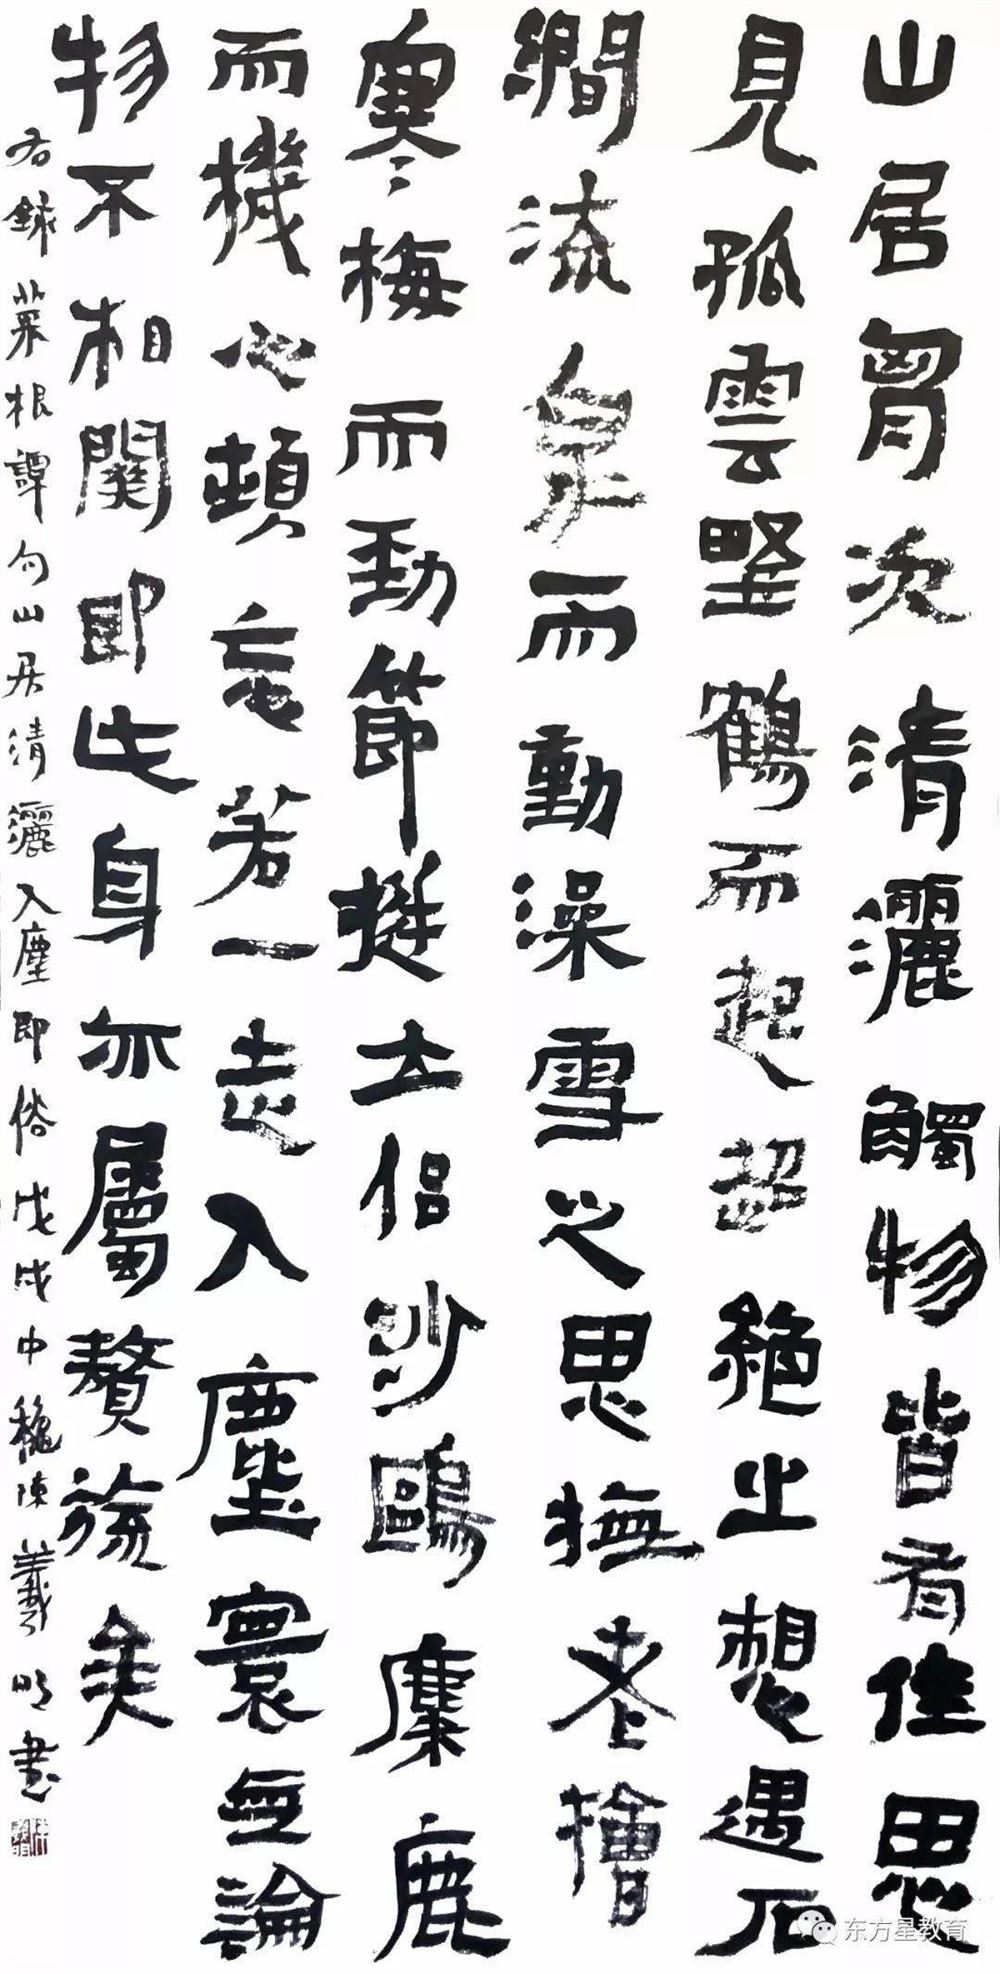 山居胷次清灑觸物皆有佳思
見孤雲野鶴而起超絕之想遇石
澗流泉而動澡雪之思撫老檜
寒梅而勁節挺立侶沙鷗麋鹿
而機心頓忘若一走入塵寰無論
物不相關即此身亦屬贅旒矣
右錄菜根譚句山居清灑入塵即俗戊戌中穐陳羲明書
东方星教育